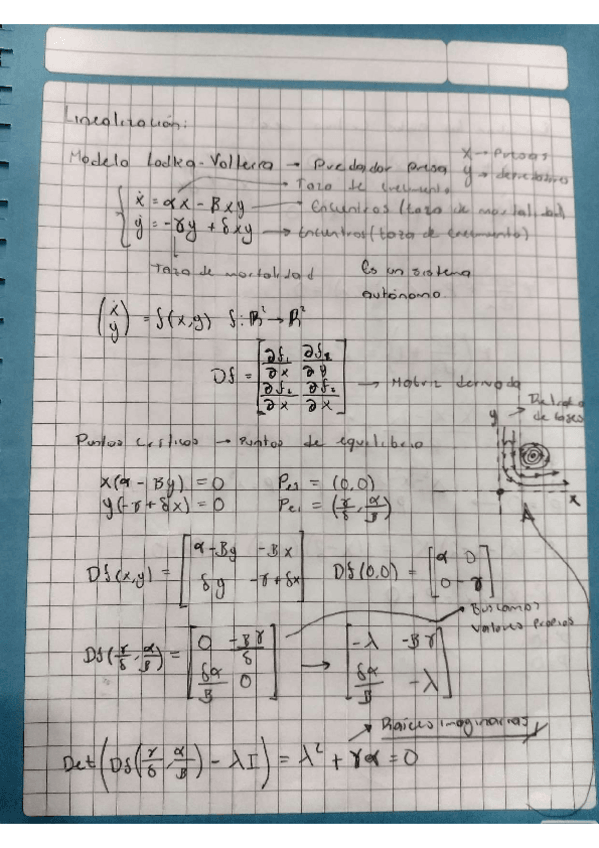 Linealización:
Modelo Lodka-Volterra → Predador presa
x → Presas
y → depredadores
ẋ = αx - Bxy
→ Taza de crecimiento
→ Encuentros (taza de mortalidad)
ẏ = -γy + δxy → Encuentros (taza de crecimiento)
Taza de mortalidad
Es un sistema
autónomo.
(ẋ ẏ) = f(x,y) f: ℝ² → ℝ²
Df = [∂f₁/∂x ∂f₂/∂y
∂f₂/∂x ∂f₂/∂x] → Matriz derivada
y → Retrato
de fases
x
Puntos críticos → Puntos de equilibrio
x(α - By) = 0 Pe₁ = (0,0)
y(-γ + δx) = 0 Pe₁ = (γ/δ, α/B)
Df(x,y) = [α - By -Bx
δy -γ + δx]
Df(0,0) = [α 0
0 -γ]
→ Buscamos
valores propios
Df(γ/δ, α/B) = [0 -Bγ/δ
δα/B 0] → [-λ -Bγ
δα/B -λ]
→ Raíces imaginarias
Det(Df(γ/δ, α/B) - λI) = λ² + γα = 0